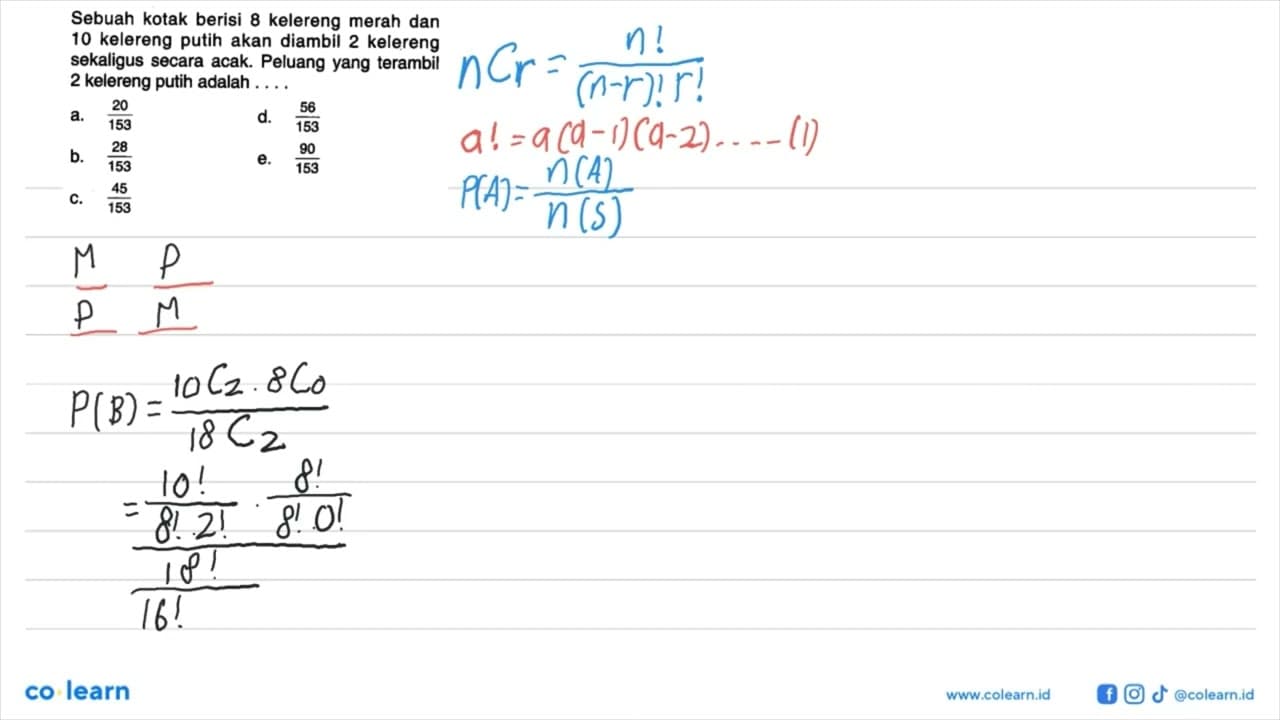 Sebuah kotak berisi 8 kelereng merah dan
10 kelereng putih akan diambil 2 kelereng
sekaligus secara acak. Peluang yang terambil
2 kelereng putih adalah . . . .
a. 20/153 d. 56/153
b. 28/153 e. 90/153
c. 45/153
nCr = n!/(n-r)! r!
a! = a(a-1)(a-2).....(1)
P(A) = n(A)/n(S)
M P
P M
P(B) = 10C2 . 8C0
18C2
= 10!/8! . 2! . 8!/8! . 0!
18!
16!
co learn
www.colearn.id @colearn.id